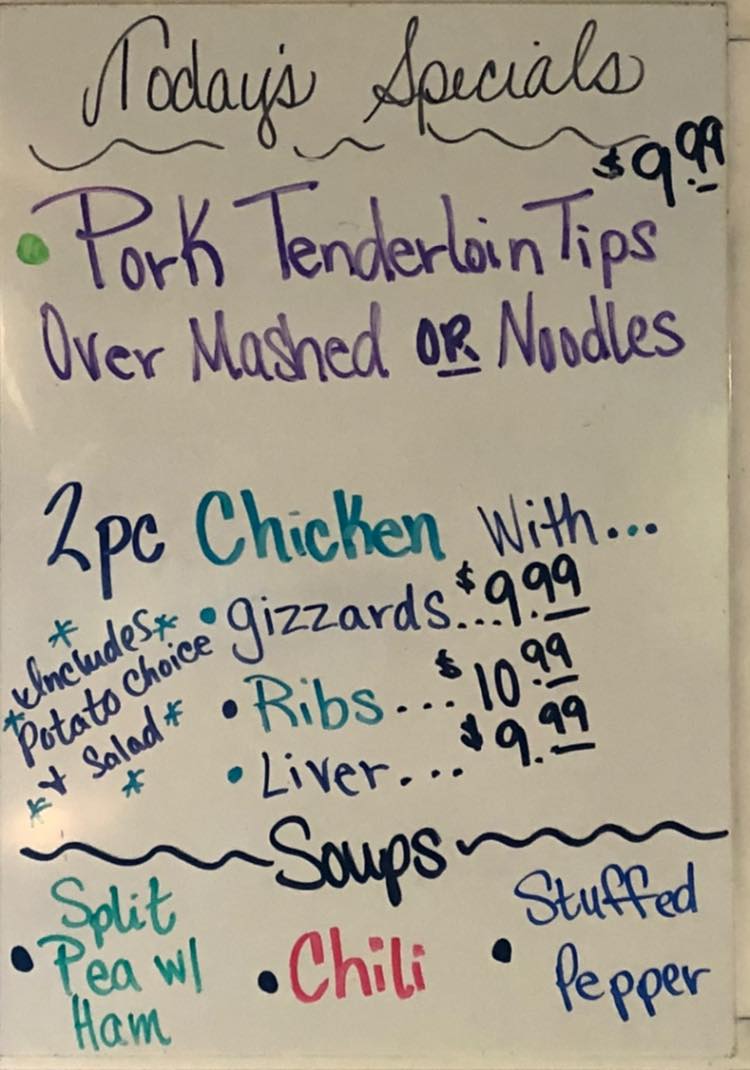 Today's Specials
$9.99
• Pork Tenderloin Tips
Over Mashed OR Noodles
2pc Chicken With...
• gizzards...$9.99
• Ribs...$10.99
• Liver...$9.99
*Includes*
*Potato Choice
*+ Salad*
*
Soups
• Split
Pea w/
Ham
• Chili
• Stuffed
Pepper